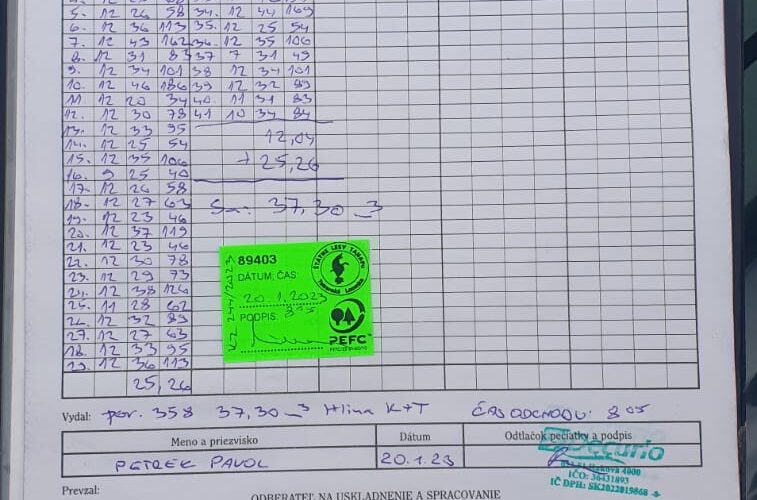 5. 12 26 58 34. 12 44 169
6. 12 36 113 35. 12 25 54
7. 12 43 162 36. 12 35 106
8. 12 31 83 37 7 31 49
9. 12 34 101 38 12 34 101
10. 12 46 186 39 12 32 89
11 12 20 34 40. 11 31 83
12. 12 30 78 41 10 34 84
13. 12 33 95
12,04
14. 12 25 54
15. 12 35 106
+ 25,26
16. 9 25 40
17. 12 26 58
18. 12 27 63
37,30
19. 12 23 46
20. 12 37 119
21. 12 23 46
22. 12 30 78
23. 12 29 73
24. 12 38 126
25. 11 28 62
26. 12 32 89
27. 12 27 63
18. 12 33 95
29. 12 36 113
25,26
89403
DÁTUM, ČAS:
20.1.2023
PODPIS: 8 05
ŠTÁTNE LESY TANAPU
Tatranská Lomnica
PEFC
Vydal: por. 358 37,30 Hlina K+T ČAS ODCHODU: 8 05
Meno a priezvisko Dátum Odtlačok pečiatky a podpis
PETREK PAVOL 20.1.23
Decurio
IČO: 36431893
IČ DPH: SK2022019868
Prevzal:
ODBERATEĽ NA USKLADNENIE A SPRACOVANIE